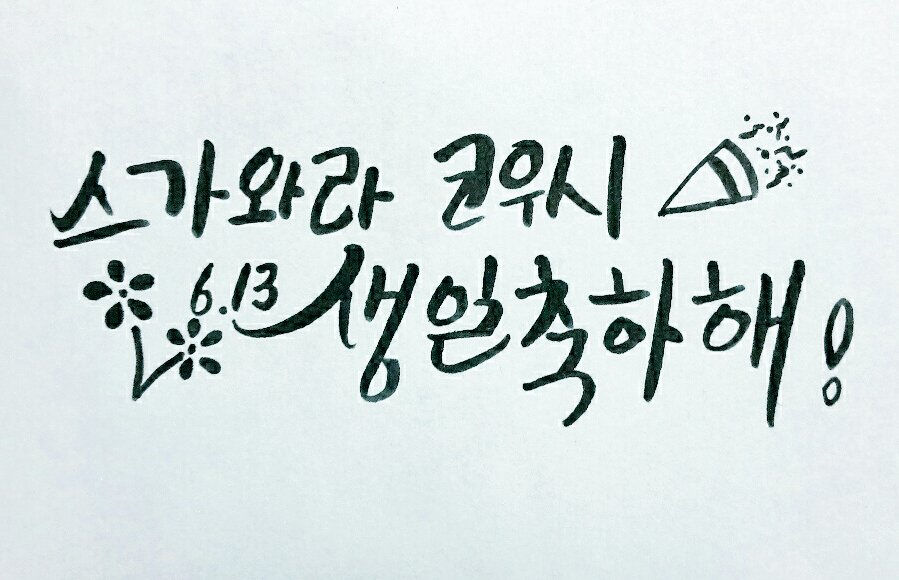 스가와라 코위시
6.13 생일축하해!